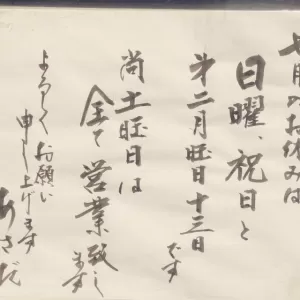 七月のお休みは
日曜、祝日と
第二月曜日十三日
です
尚土曜日は
全て営業致し
ます
よろしくお願い
申し上げます